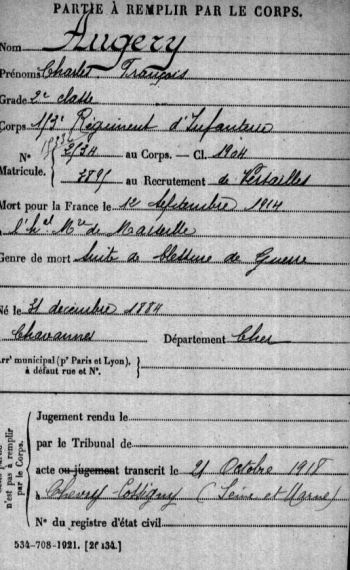 PARTIE À REMPLIR PAR LE CORPS.
Nom Augery
Prénoms Charles François
Grade 2e classe
Corps 113e Régiment d'Infanterie
No 2/34 au Corps. — Cl. 1904
Matricule. au Recrutement de Versailles
Mort pour la France le 12 Septembre 1914
à l'hal Mre de Marseille
Genre de mort Suite de blessure de Guerre
Né le 21 décembre 1884
Chavannes Département Cher
Arrt municipal (pr Paris et Lyon),
à défaut rue et No.
Jugement rendu le
par le Tribunal de
acte ou jugement transcrit le 21 Octobre 1918
à Chevry Cossigny (Seine et Marne)
No du registre d'état civil
n'est pas à remplir
par le Corps.
534-708-1921. [26134.]